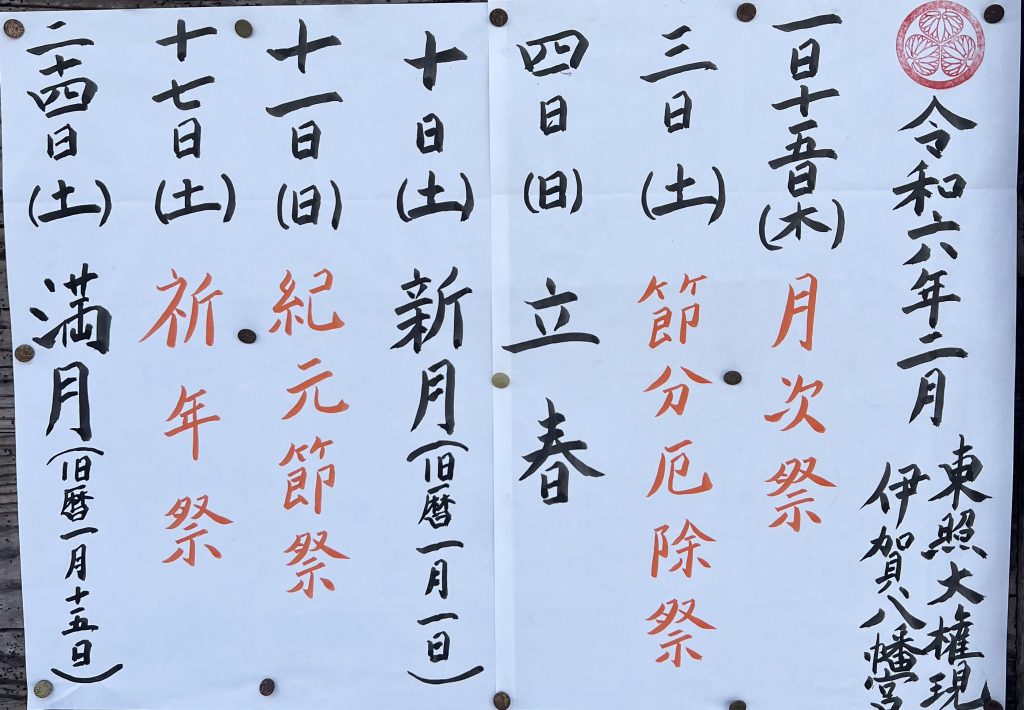 令和六年二月
東照大権現
伊賀八幡宮
一日十五日(木) 月次祭
三日(土) 節分厄除祭
四日(日) 立春
十日(土) 新月(旧暦一月一日)
十一日(日) 紀元節祭
十七日(土) 祈年祭
二十四日(土) 満月(旧暦一月十五日)